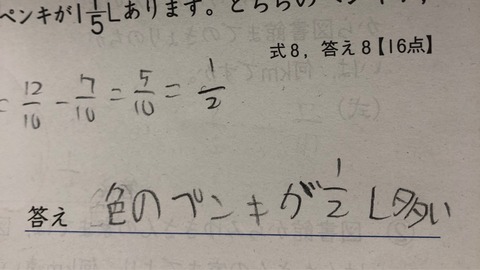 ペンキが1 1/5 Lあります。どちらのペンキが,
式8, 答え8【16点】
= 12/10 - 7/10 = 5/10 = 1/2
答え 色のペンキが 1/2 L多い